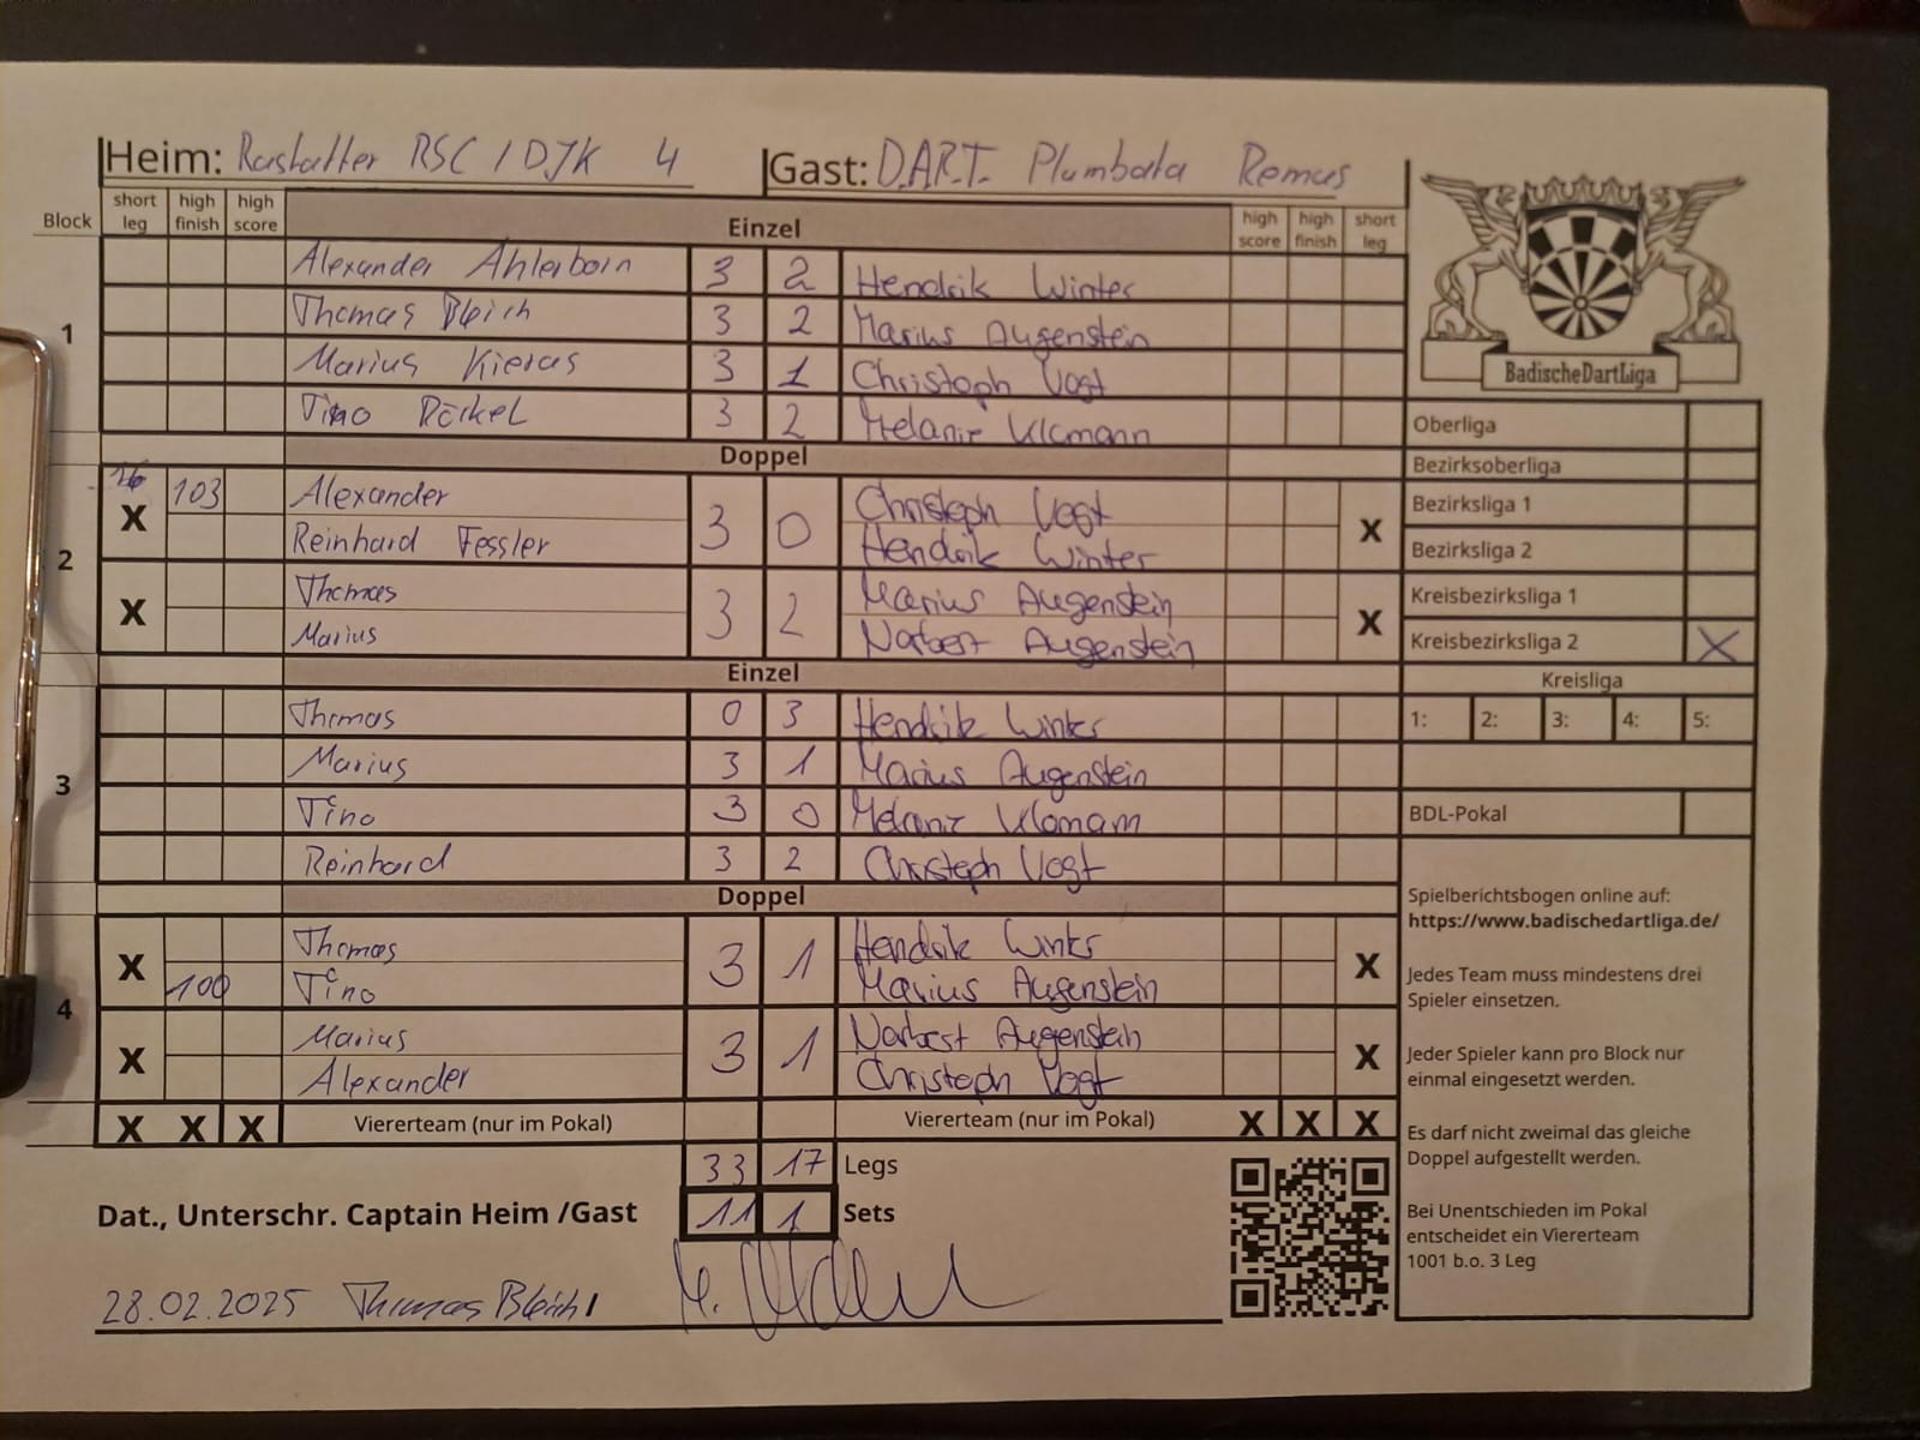 Heim: Rastatter RSC / DJK 4 Gast: D.A.R.T. Plumbata Remus
Block short leg high finish high score Einzel high score high finish short leg
1
Alexander Ahlerborn 3 2 Hendrik Winter
Thomas Bleich 3 2 Marius Augenstein
Marius Kieras 3 1 Christoph Vogt
Tino 3 2 Melanie
Doppel
2
X 103 Alexander 3 0 Christoph Vogt X
Reinhard Fessler Hendrik Winter
X Thomas 3 2 Marius Augenstein X
Marius Norbert Augenstein
Einzel
3
Thomas 0 3 Hendrik Winter
Marius 3 1 Marius Augenstein
Tino 3 0 Melanie
Reinhard 3 2 Christoph Vogt
Doppel
4
X Thomas 3 1 Hendrik Winter X
100 Tino Marius Augenstein
X Marius 3 1 Norbert Augenstein X
Alexander Christoph Vogt
X X X Viererteam (nur im Pokal) Viererteam (nur im Pokal) X X X
33 17 Legs
Dat., Unterschr. Captain Heim /Gast 11 1 Sets
28.02.2025 Thomas Bleich
BadischeDartLiga
Oberliga
Bezirksoberliga
Bezirksliga 1
Bezirksliga 2
Kreisbezirksliga 1
Kreisbezirksliga 2 X
Kreisliga
1: 2: 3: 4: 5:
BDL-Pokal
Spielberichtsbogen online auf:
https://www.badischedartliga.de/
Jedes Team muss mindestens drei
Spieler einsetzen.
Jeder Spieler kann pro Block nur
einmal eingesetzt werden.
Es darf nicht zweimal das gleiche
Doppel aufgestellt werden.
Bei Unentschieden im Pokal
entscheidet ein Viererteam
1001 b.o. 3 Leg